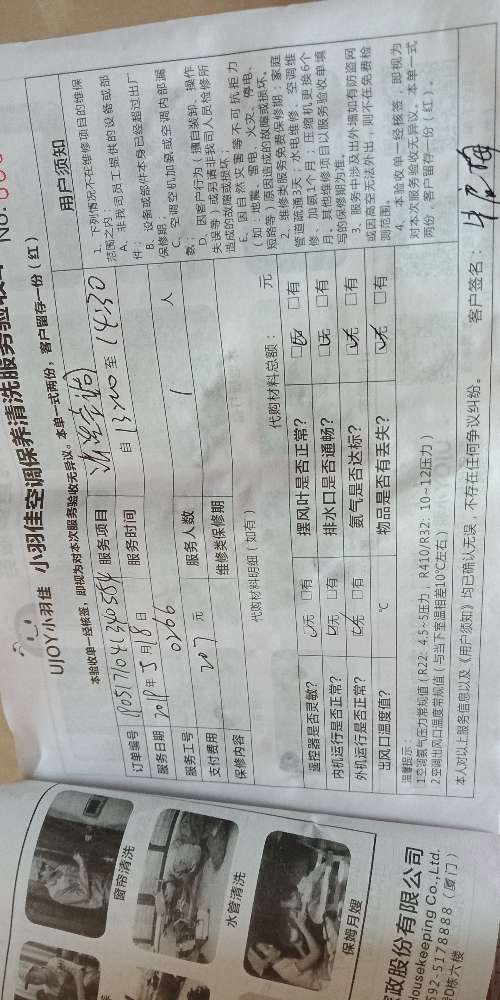 UJOY小羽佳 小羽佳空调保养清洗服务验收单
No:
本验收单一经核签，即视为对本次服务验收无异议。本单一式两份，客户留存一份（红）
订单编号 服务项目 清洗空调
服务日期 2019年5月18日 服务时间 自13:00至14:30
服务工号 0266 服务人数 1 人
支付费用 207 元 维修类保修期
保修内容
代购材料明细（如有） 代购材料总额： 元
遥控器是否灵敏？ ☑无 □有 摆风叶是否正常？ ☑无 □有
内机运行是否正常？ ☑无 □有 排水口是否通畅？ ☑无 □有
外机运行是否正常？ ☑无 □有 氨气是否达标？ ☑无 □有
出风口温度值？ ℃ 物品是否有丢失？ ☑无 □有
温馨提示：
1空调氨气压力常规值（R22：4.5~5压力，R410/R32：10~12压力）
2空调出风口温度常规值（与当下室温相差10℃左右）
本人对以上服务信息以及《用户须知》均已确认无误，不存在任何争议纠纷。 客户签名：
用户须知
1、下列情况不在维修项目的维保
范围之内：
A、非我司员工提供的设备或部
件；
B、设备或部件本身已经超过出厂
保修期；
C、空调空机加氨或空调内部漏
氨；
D、因客户行为（擅自装卸、操作
失误等）或另请非我司人员检修所
造成的故障或损坏
E、因自然灾害等不可抗拒力
（如：地震、雷电、火灾、停电、
短路等）原因造成的故障或损坏。
2、维修类服务免费保修期：家庭
管道疏通3天；水电维修、空调维
修、加氨1个月；压缩机更换6个
月。其他维修项目以服务验收单填
写的保修期为准。
3、服务中涉及出外墙如有防盗网
或因高空无法外出，则不在免费检
测范围。
4、本验收单一经核签，即视为
对本次服务验收无异议。本单一式
两份，客户留存一份（红）。
窗帘清洗
水管清洗
保姆月嫂
政股份有限公司
ousekeeping Co.,Ltd.
92-5178888（厦门）
D栋六楼